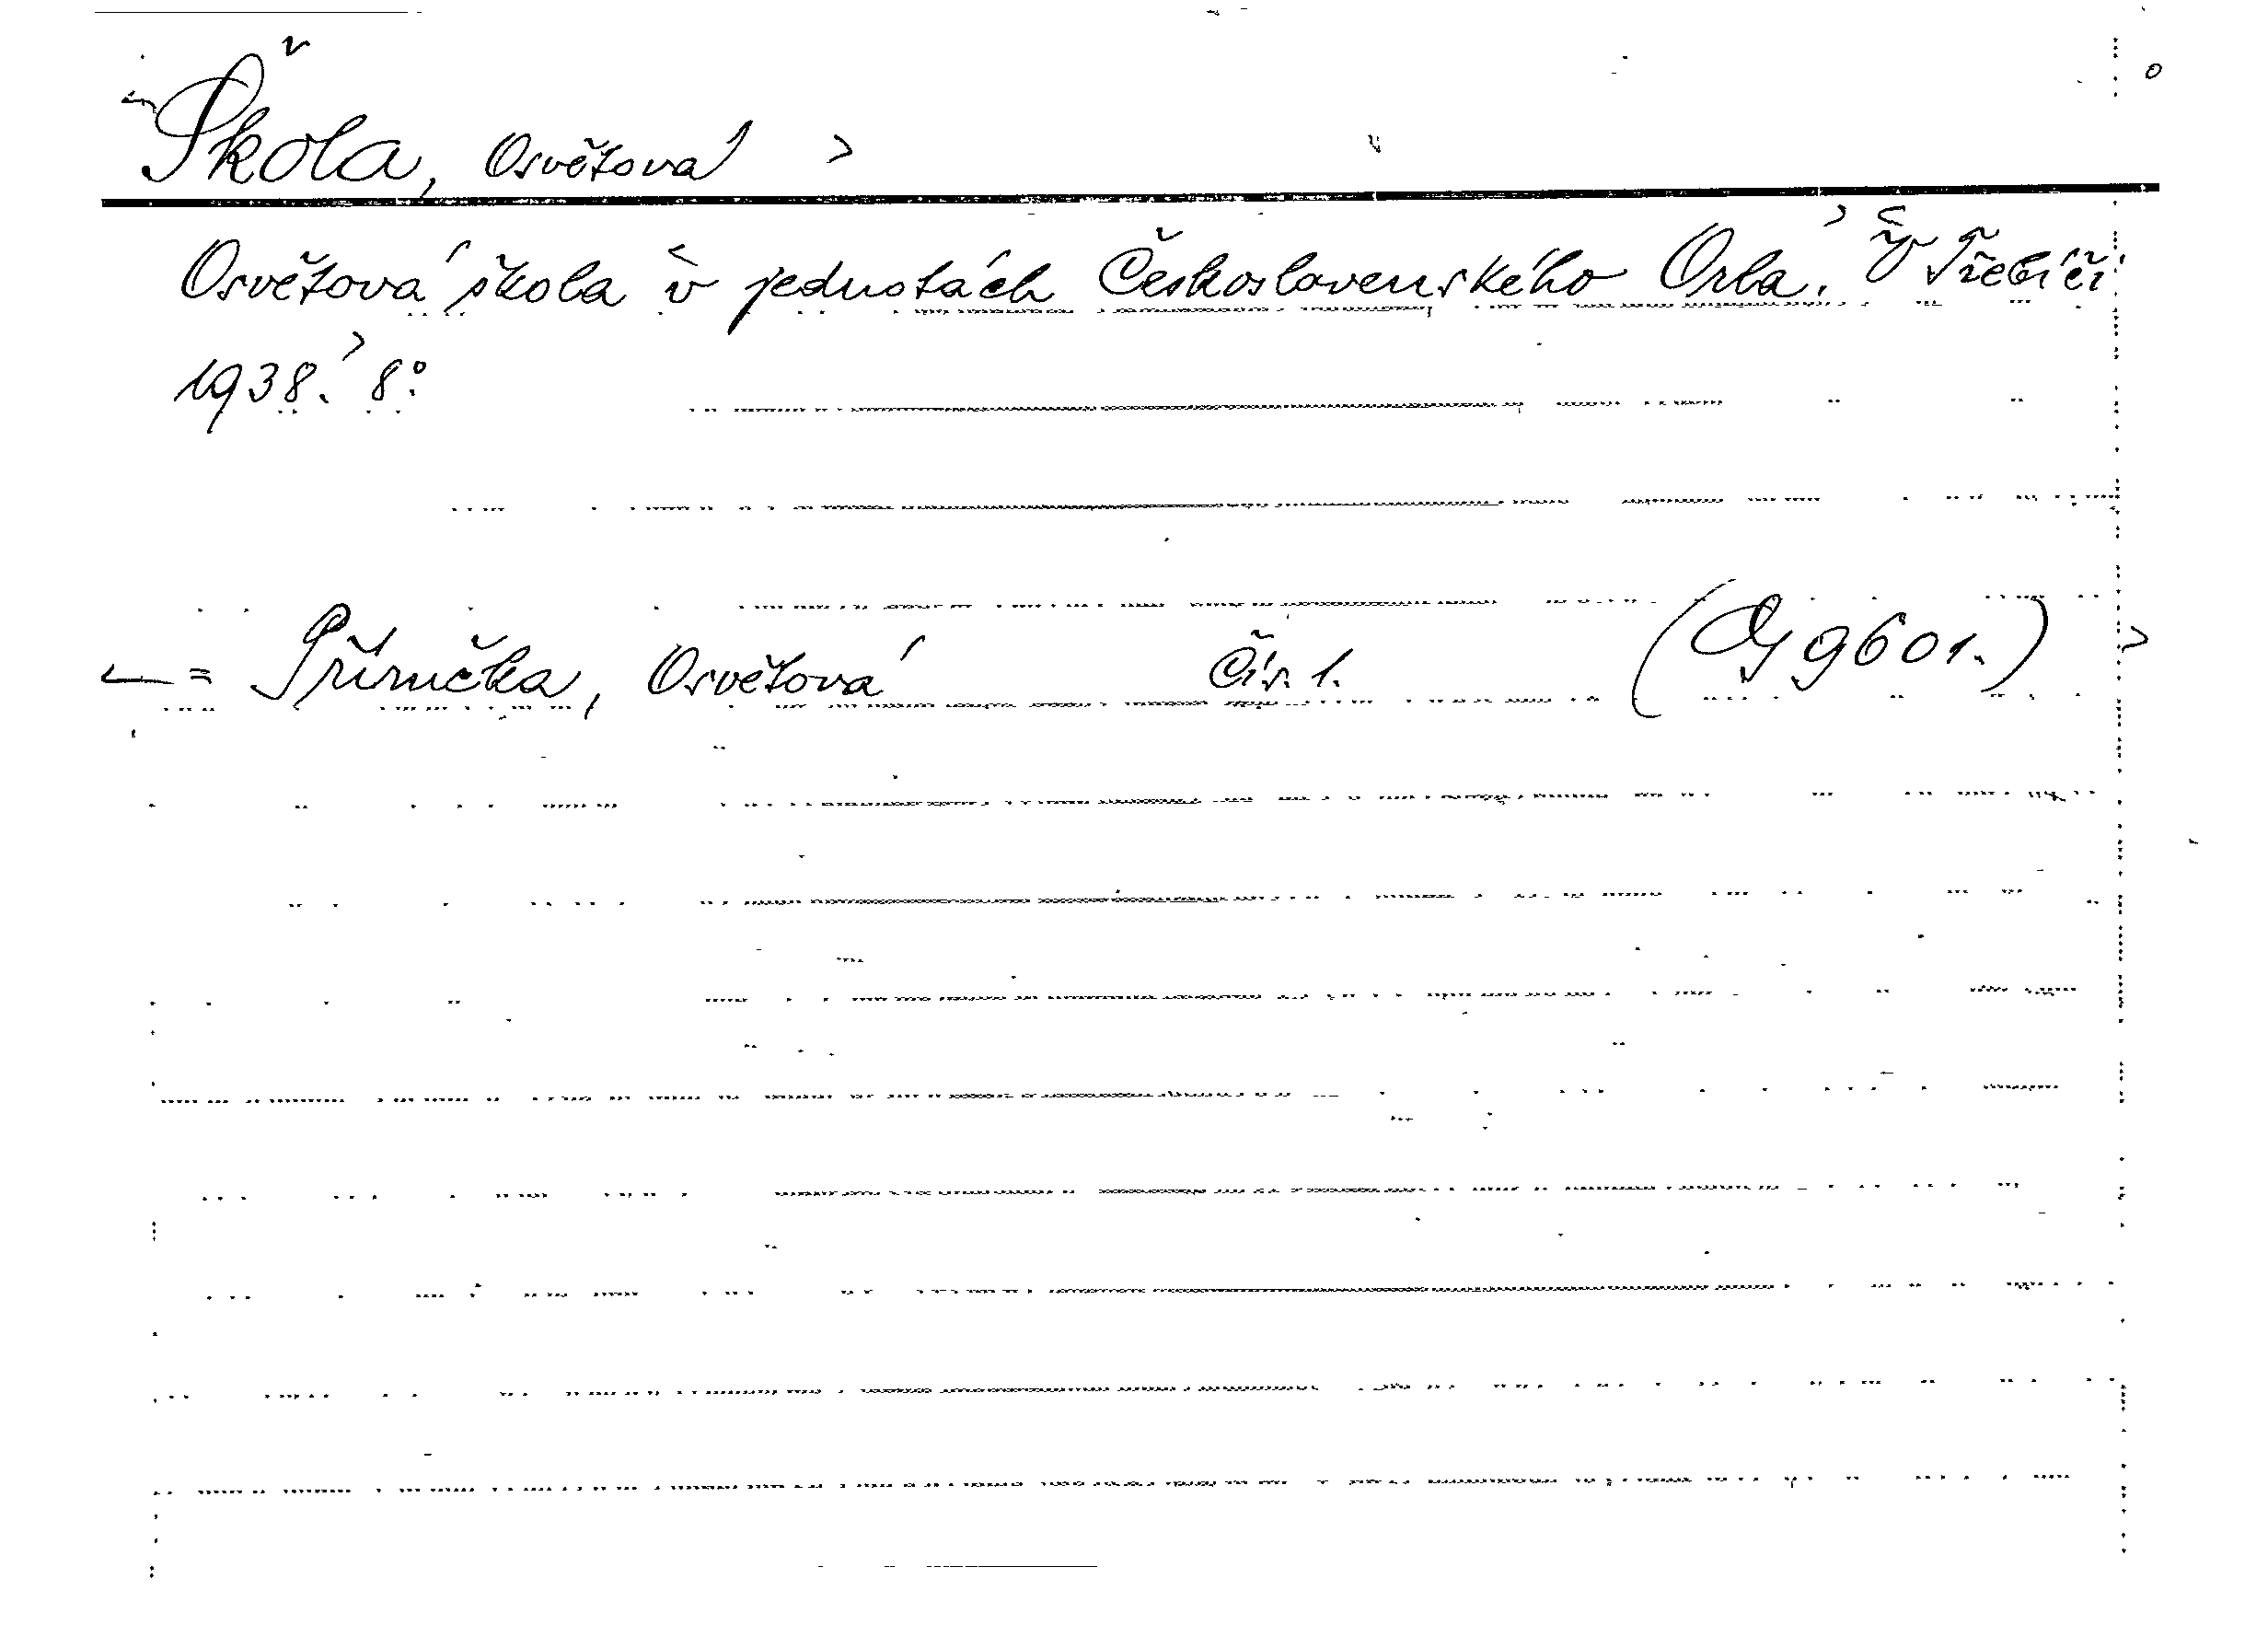 Škola, Osvětová
Osvětová škola v jednotách Československého Orla. V Třebíči
1938. 8°.
= Příručka, Osvětová Čís. 1. (Og 9601.)